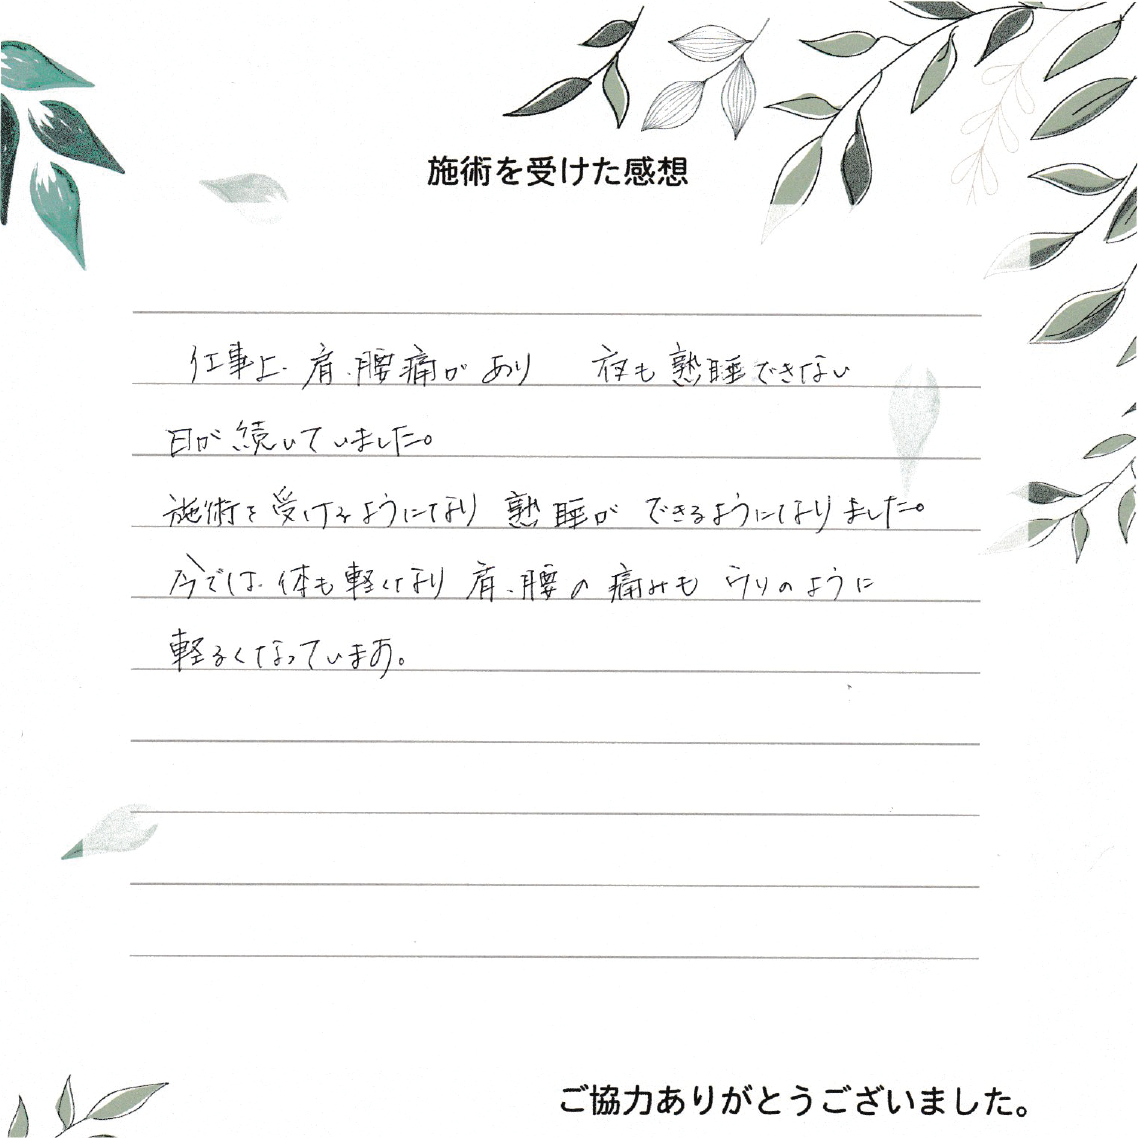 施術を受けた感想
仕事上、肩、腰痛があり 夜も熟睡できない
日が続いていました。
施術を受けるようになり 熟睡ができるようになりました。
今では、体も軽くなり 肩、腰の痛みも ウソのように
軽るくなっています。
ご協力ありがとうございました。